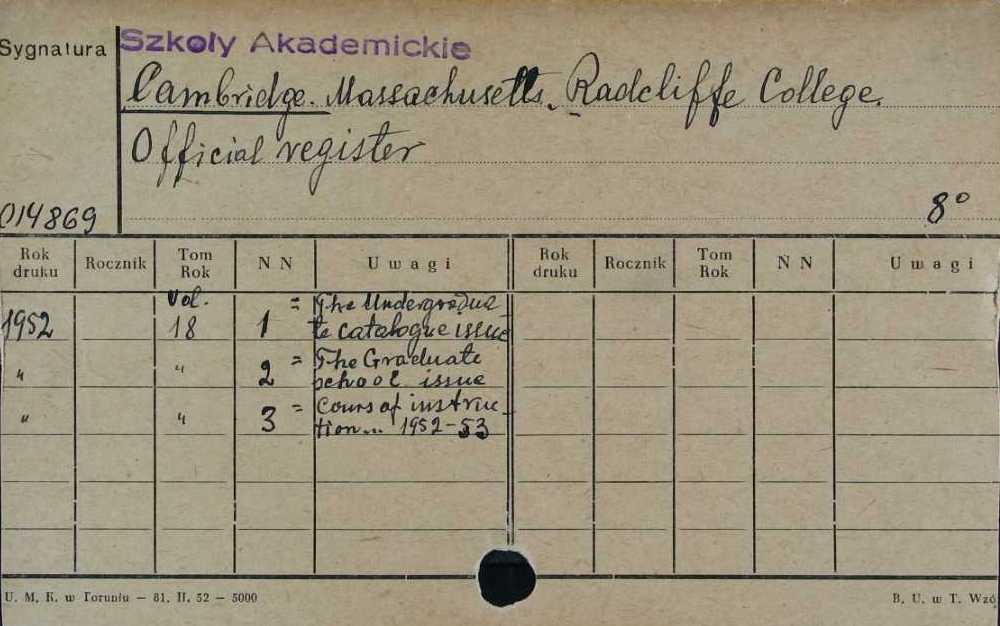 Sygnatura
Szkoły Akademickie
Cambridge. Massachusetts. Radcliffe College.
Official register
014869
8°
Rok druku Rocznik Tom Rok N N Uwagi Rok druku Rocznik Tom Rok N N Uwagi
1952 Vol. 18 1 = The Undergradua-
te catalogue issue
" " 2 = The Graduate
school issue
" " 3 = Cours of instruc-
tion... 1952-53
U. M. K. w Toruniu — 81. II. 52 — 5000
B. U. w T. Wzó